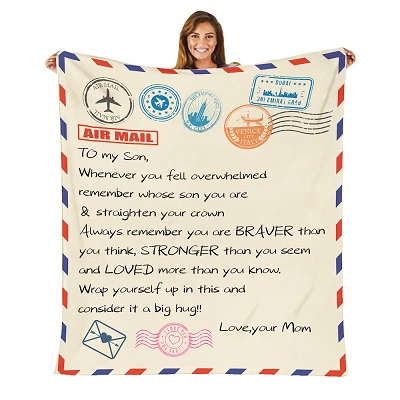 AIR MAIL
DUBAI
VENICE
ITALY
AIR MAIL
TO my Son,
Whenever you fell overwhelmed
remember whose son you are
& straighten your crown
Always remember you are BRAVER than
you think, STRONGER than you seem
and LOVED more than you know.
Wrap yourself up in this and
consider it a big hug!!
Love,your Mom